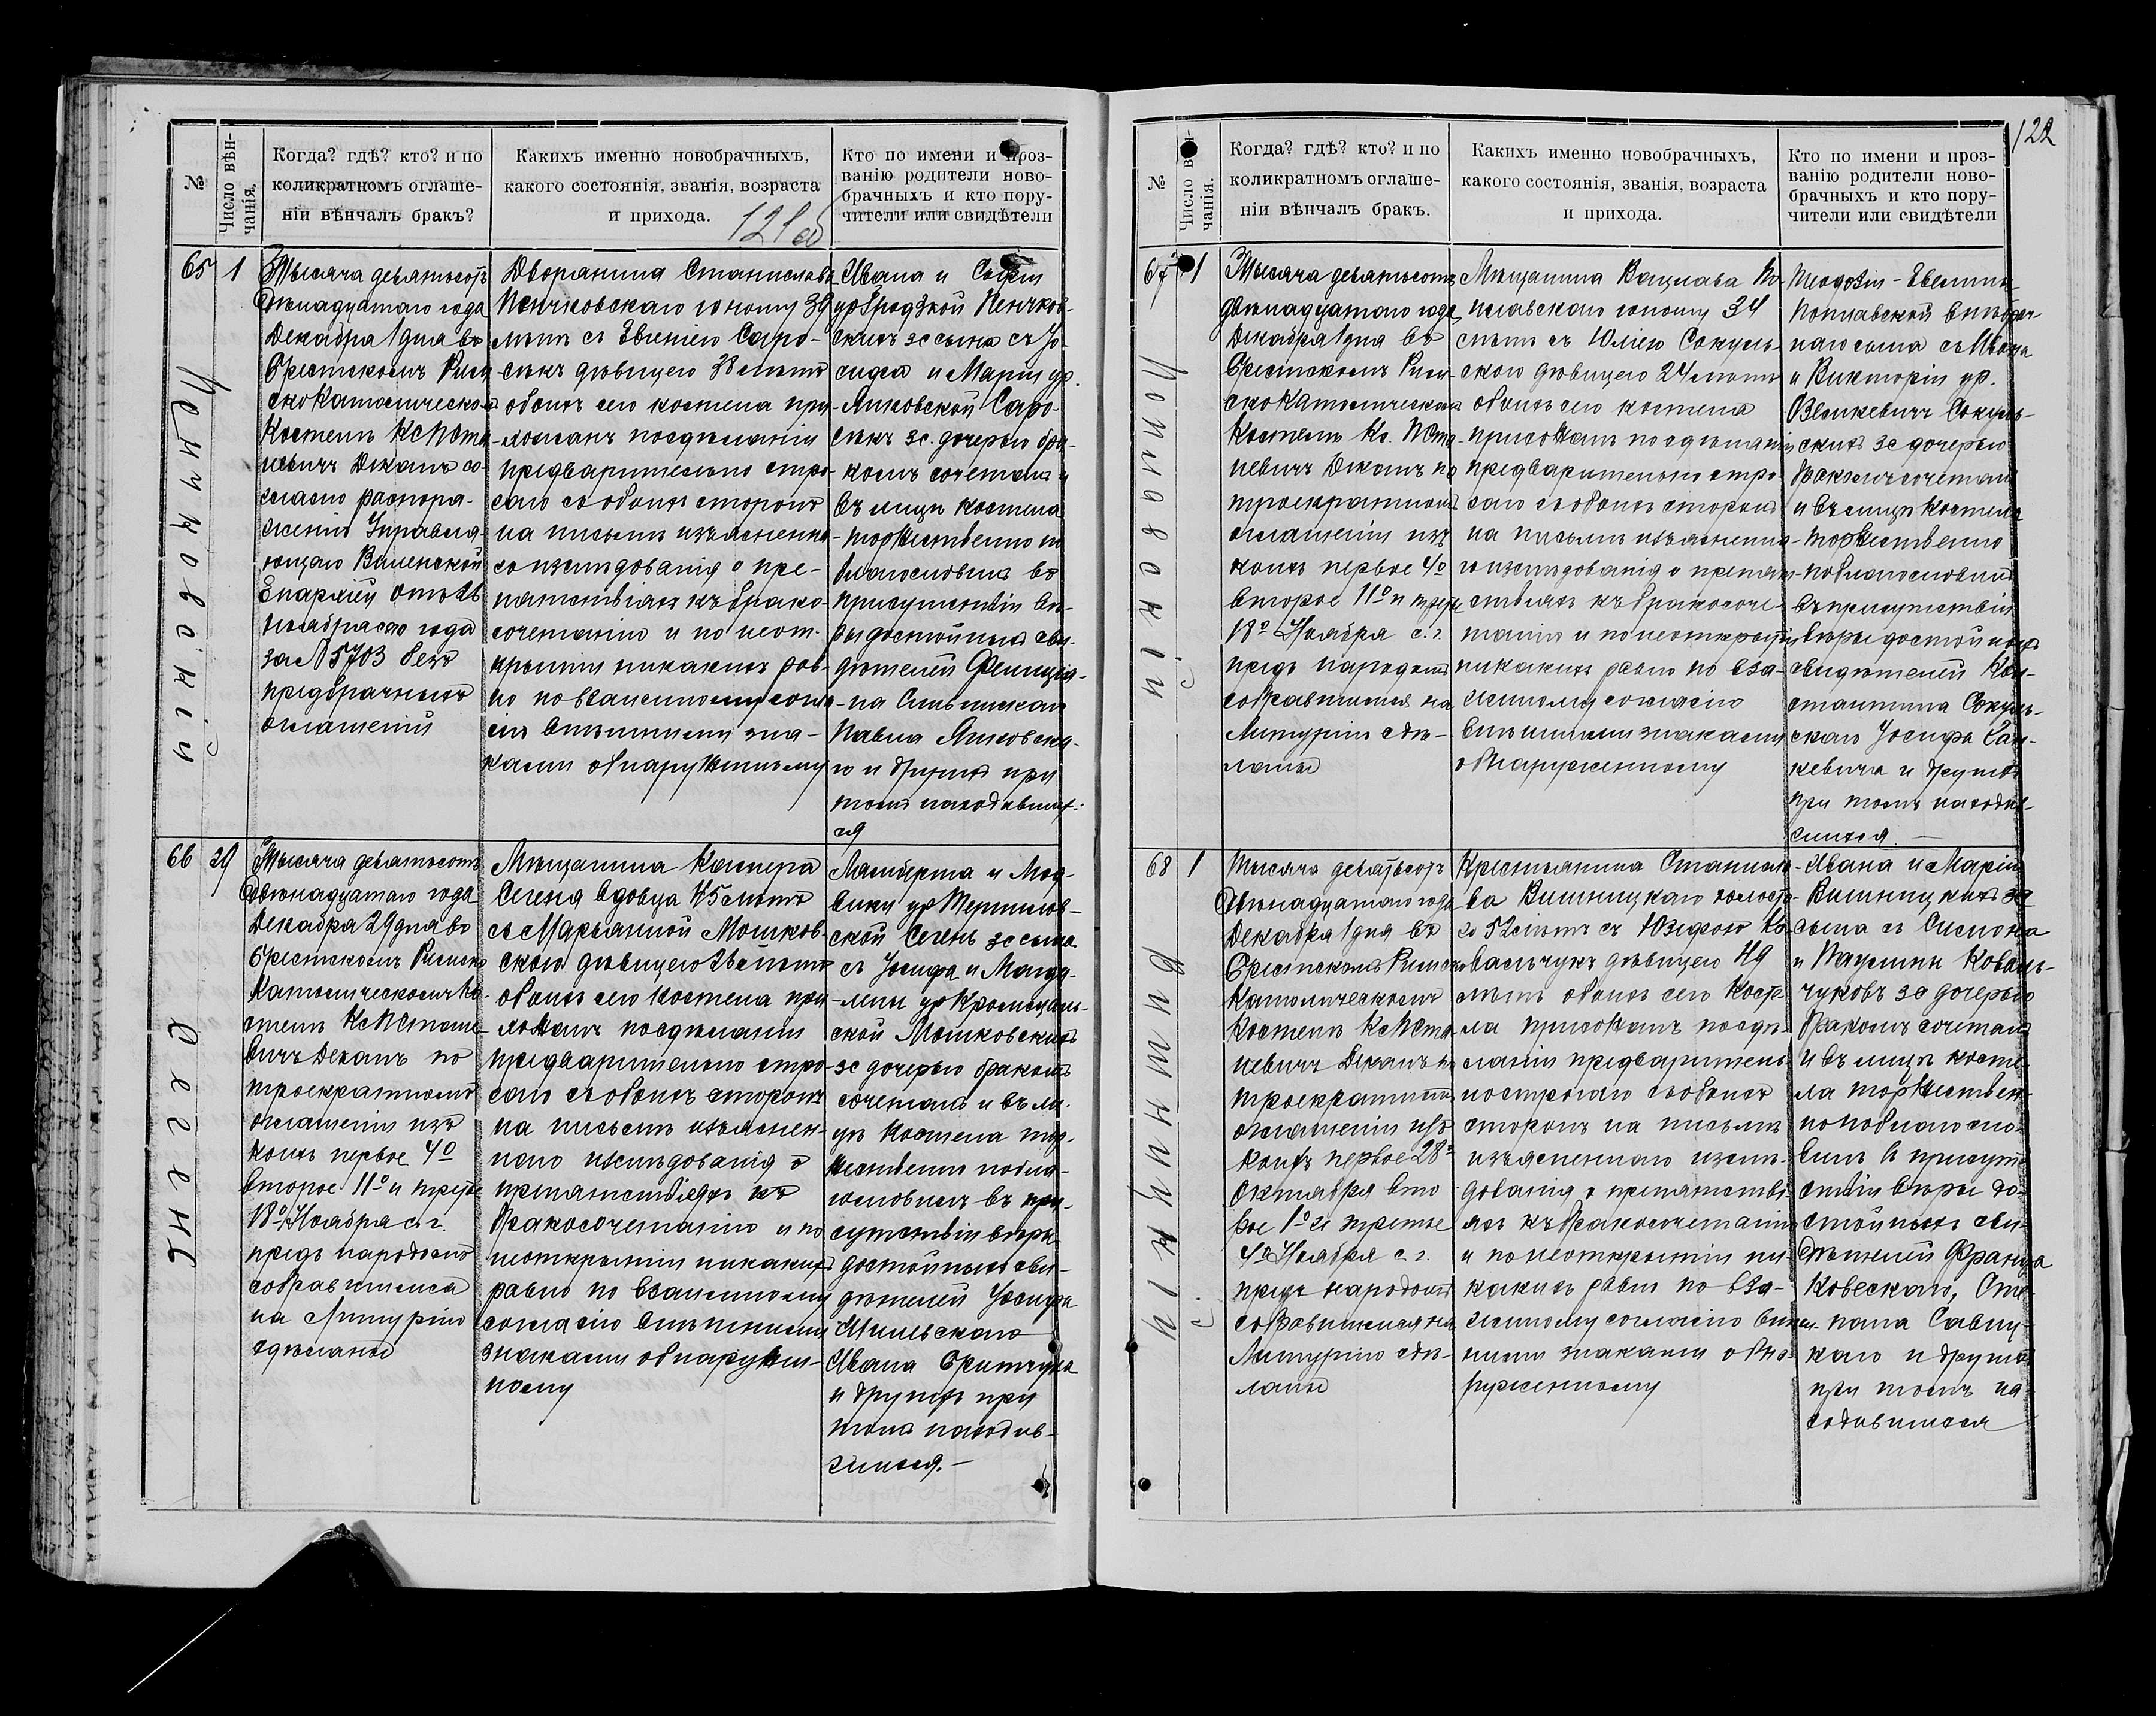 №
Число вѣн-
чанія.
Когда? гдѣ? кто? и по
коликратномъ оглаше-
ніи вѣнчалъ бракъ?
Какихъ именно новобрачныхъ,
какого состоянія, званія, возраста
и прихода.
121 об
Кто по имени и проз-
ванію родители ново-
брачныхъ и кто пору-
чители или свидѣтели
65
1
Тысяча девятьсотъ
Двѣнадцатаго года
Декабря 1 дня въ
Брестскомъ Римъ
скоКатолическом
Костелѣ КсПСта
невичъ Деканъ со-
гласно распоря-
женія Управля-
ющаго Виленской
Епархіей отъ 26
Ноября сего года
за № 5703 безъ
предбрачныхъ
оглашеній
Дворянина Станислава
Пенчковскаго юношу 39
лѣтъ съ Евгеніею Саро-
сѣкъ дѣвицею 38 лѣтъ
обоихъ сего костела при-
хожанъ посдѣланіи
предварительно стро-
гаго съ обоихъ сторонъ
на письмѣ изъясненна-
го изслѣдованія о пре-
пятствіяхъ къ брако-
сочетанію и по неот-
крытіи никакихъ рав-
но по взаимному согла-
сію внѣшними зна-
ками обнаруженному
Ивана и Софіи
ур Бродзкой Пенчков-
скихъ зс сына съ Іо-
сифа и Маріи ур.
Янковской Саро-
сѣкъ зс. дочерью бра-
комъ сочеталъ и
въ лицѣ костела
торжественно по
благословилъ въ
присутствіи вѣ-
ры достойныхъ сви-
дѣтелей Фелиція-
на Сливинскаго
Павла Янковска-
го и другихъ при
томъ находивших-
ся
Пенчковскій
66
29
Тысяча девятьсотъ
Двѣнадцатаго года
Декабря 29 дня въ
Брестскомъ Римско
Католическомъ Ко-
стелѣ КсПСтане-
вичъ Деканъ по
троекратномъ
оглашеніи изъ
коихъ первое 4º
второе 11º и третье
18º Ноября с. г.
предъ народомъ
собравшимся
на Литургію
сдѣланы
Мѣщанина Каспера
Сегеня вдовца 45 лѣтъ
съ Марьянной Мошков-
скою дѣвицею лѣтъ
обоихъ сего костела при-
хожанъ посдѣланіи
предварительно стро-
гаго съ обоихъ сторонъ
на письмѣ изъяснен-
наго изслѣдованія о
препятствіяхъ къ
бракосочетанію и по
неоткрытіи никакихъ
равно по взаимному
согласію внѣшними
знаками обнаружен-
ному
Ламберта и Мод-
ской Сегень зс сына
съ Іосифа и Магда-
лены ур
ской Мошковскихъ
зс дочерью бракомъ
сочеталъ и въ ли-
цѣ Костела тор-
жественно побла-
гословилъ въ при-
сутствіи вѣры
достойныхъ сви-
дѣтелей Іосифа
Ивана
и другихъ при
томъ находив-
шихся.-
Сегень
№
Число вѣн-
чанія.
Когда? гдѣ? кто? и по
коликратномъ оглаше-
ніи вѣнчалъ бракъ.
Какихъ именно новобрачныхъ,
какого состоянія, званія, возраста
и прихода.
Кто по имени и проз-
ванію родители ново-
брачныхъ и кто пору-
чители или свидѣтели
122
67
1
Тысяча девятьсотъ
двѣнадцатаго года
Декабря 1 дня въ
Брестскомъ Рим-
скоКатолическомъ
Костелѣ Кс. ПСта-
невичъ Деканъ по
троекратномъ
оглашеніи изъ
коихъ первое 4º
второе 11º и третье
18º Ноября с. г.
предъ народомъ
собравшимся на
Литургію сдѣ-
ланы
Мѣщанина Вацлава По-
плавскаго юношу 34
лѣтъ съ Юліею Сокуль-
скою дѣвицею 24 лѣтъ
обоихъ сего костела
прихожанъ посдѣланіи
предварительно стро-
гаго съ обоихъ сторонъ
на письмѣ изъясненна-
го изслѣдованія о препят-
ствіяхъ къ бракосоче-
танію и по неоткрытіи
никакихъ равно по вза-
имному согласію
внѣшними знаками
обнаруженному
Теодозіи-Евелины
Поплавской внѣбрач-
наго сына съ Ивана
и Викторіи ур.
Сокуль-
скихъ зс дочерью
бракомъ сочеталъ
и въ лицѣ Костела
торжественно
поблагословилъ
въ присутствіи
вѣры достойныхъ
свидѣтелей Кон-
стантина Сокуль-
скаго Іосифа Сан-
кевича и другихъ
при томъ находив-
шихся. —
Поплавскій
68
1
Тысяча девятьсотъ
Двѣнадцатаго года
Декабря 1 дня въ
Брестскомъ Римско
Католическомъ
Костелѣ КсПСта
невичъ Деканъ по
троекратномъ
оглашеніи изъ
коихъ первое 28º
Октября вто
рое 1º и третье
4º Ноября с. г.
предъ народомъ
собравшимся на
Литургію сдѣ-
ланы
Крестьянина Станисла-
ва Вишницкаго холоста-
го 52 лѣтъ съ Юзефою Ко
вальчукъ дѣвицею 49
лѣтъ обоихъ сего Косте
ла прихожанъ посдѣ-
ланіи предваритель-
но строгаго съ обоихъ
сторонъ на письмѣ
изъясненнаго изслѣ-
дованія о препятстві-
яхъ къ бракосочетанію
и по неоткрытіи ни-
какихъ равно по вза-
имному согласію внѣш-
ними знаками обна-
руженному
Ивана и Маріи
Вишницкихъ зс
сына съ Симона
и Паулины Коваль-
чуковъ зс дочерью
бракомъ сочеталъ
и въ лицѣ косте-
ла торжествен-
но поблагосло-
вилъ въ присут-
ствіи вѣры до-
стойныхъ сви-
дѣтелей Франца
Ковескаго, Сте-
пана Савиц-
каго и другихъ
при томъ на-
ходившихся
Вишницкій